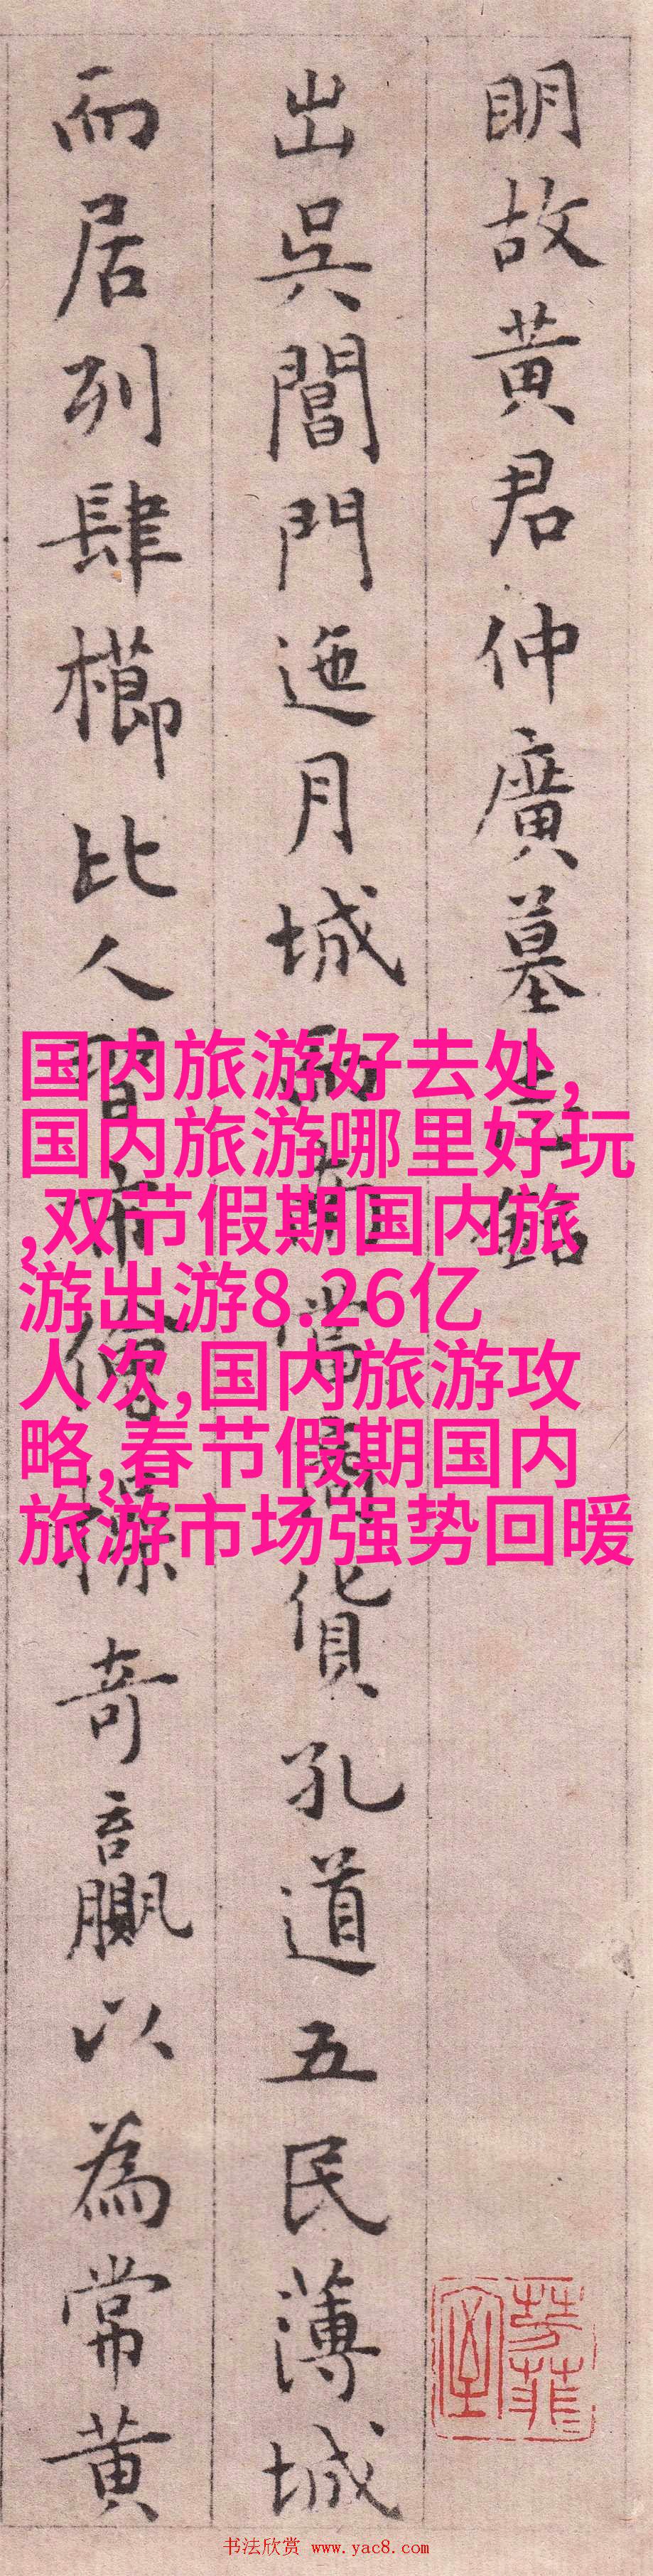 眀故黄君仲廣墓志銘
出吳閶門迤月城而南當商貨孔道五民薄城
而居列肆櫛比人習市儈操奇贏以為常黄
国内旅游好去处,
国内旅游哪里好玩
,双节假期国内旅
游出游8.26亿
人次,国内旅游攻
略,春节假期国内
旅游市场强势回暖
芳菲
书法欣赏 www.yac8.com